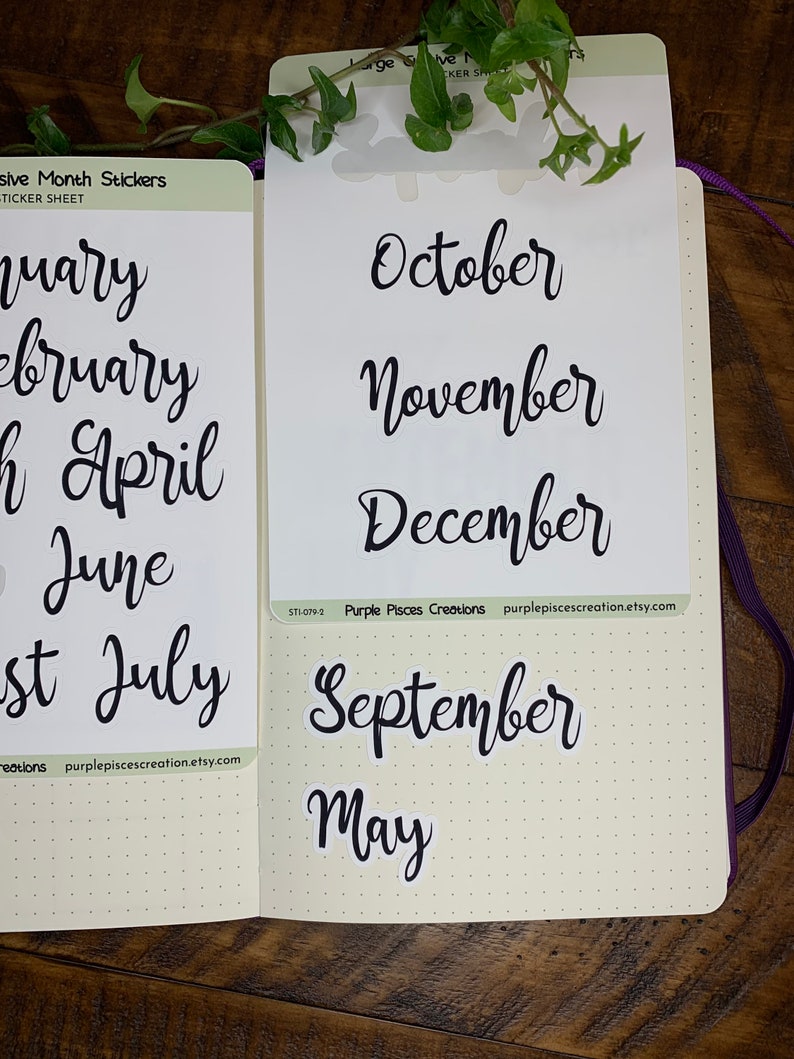 sive Month Stickers
STICKER SHEET
nuary
ebruary
h April
June
st July
reations purplepiscescreation.etsy.com
Large Cursive Mo rs
STICKER SHEET
October
November
December
STI-079-2 Purple Pisces Creations purplepiscescreation.etsy.com
September
May